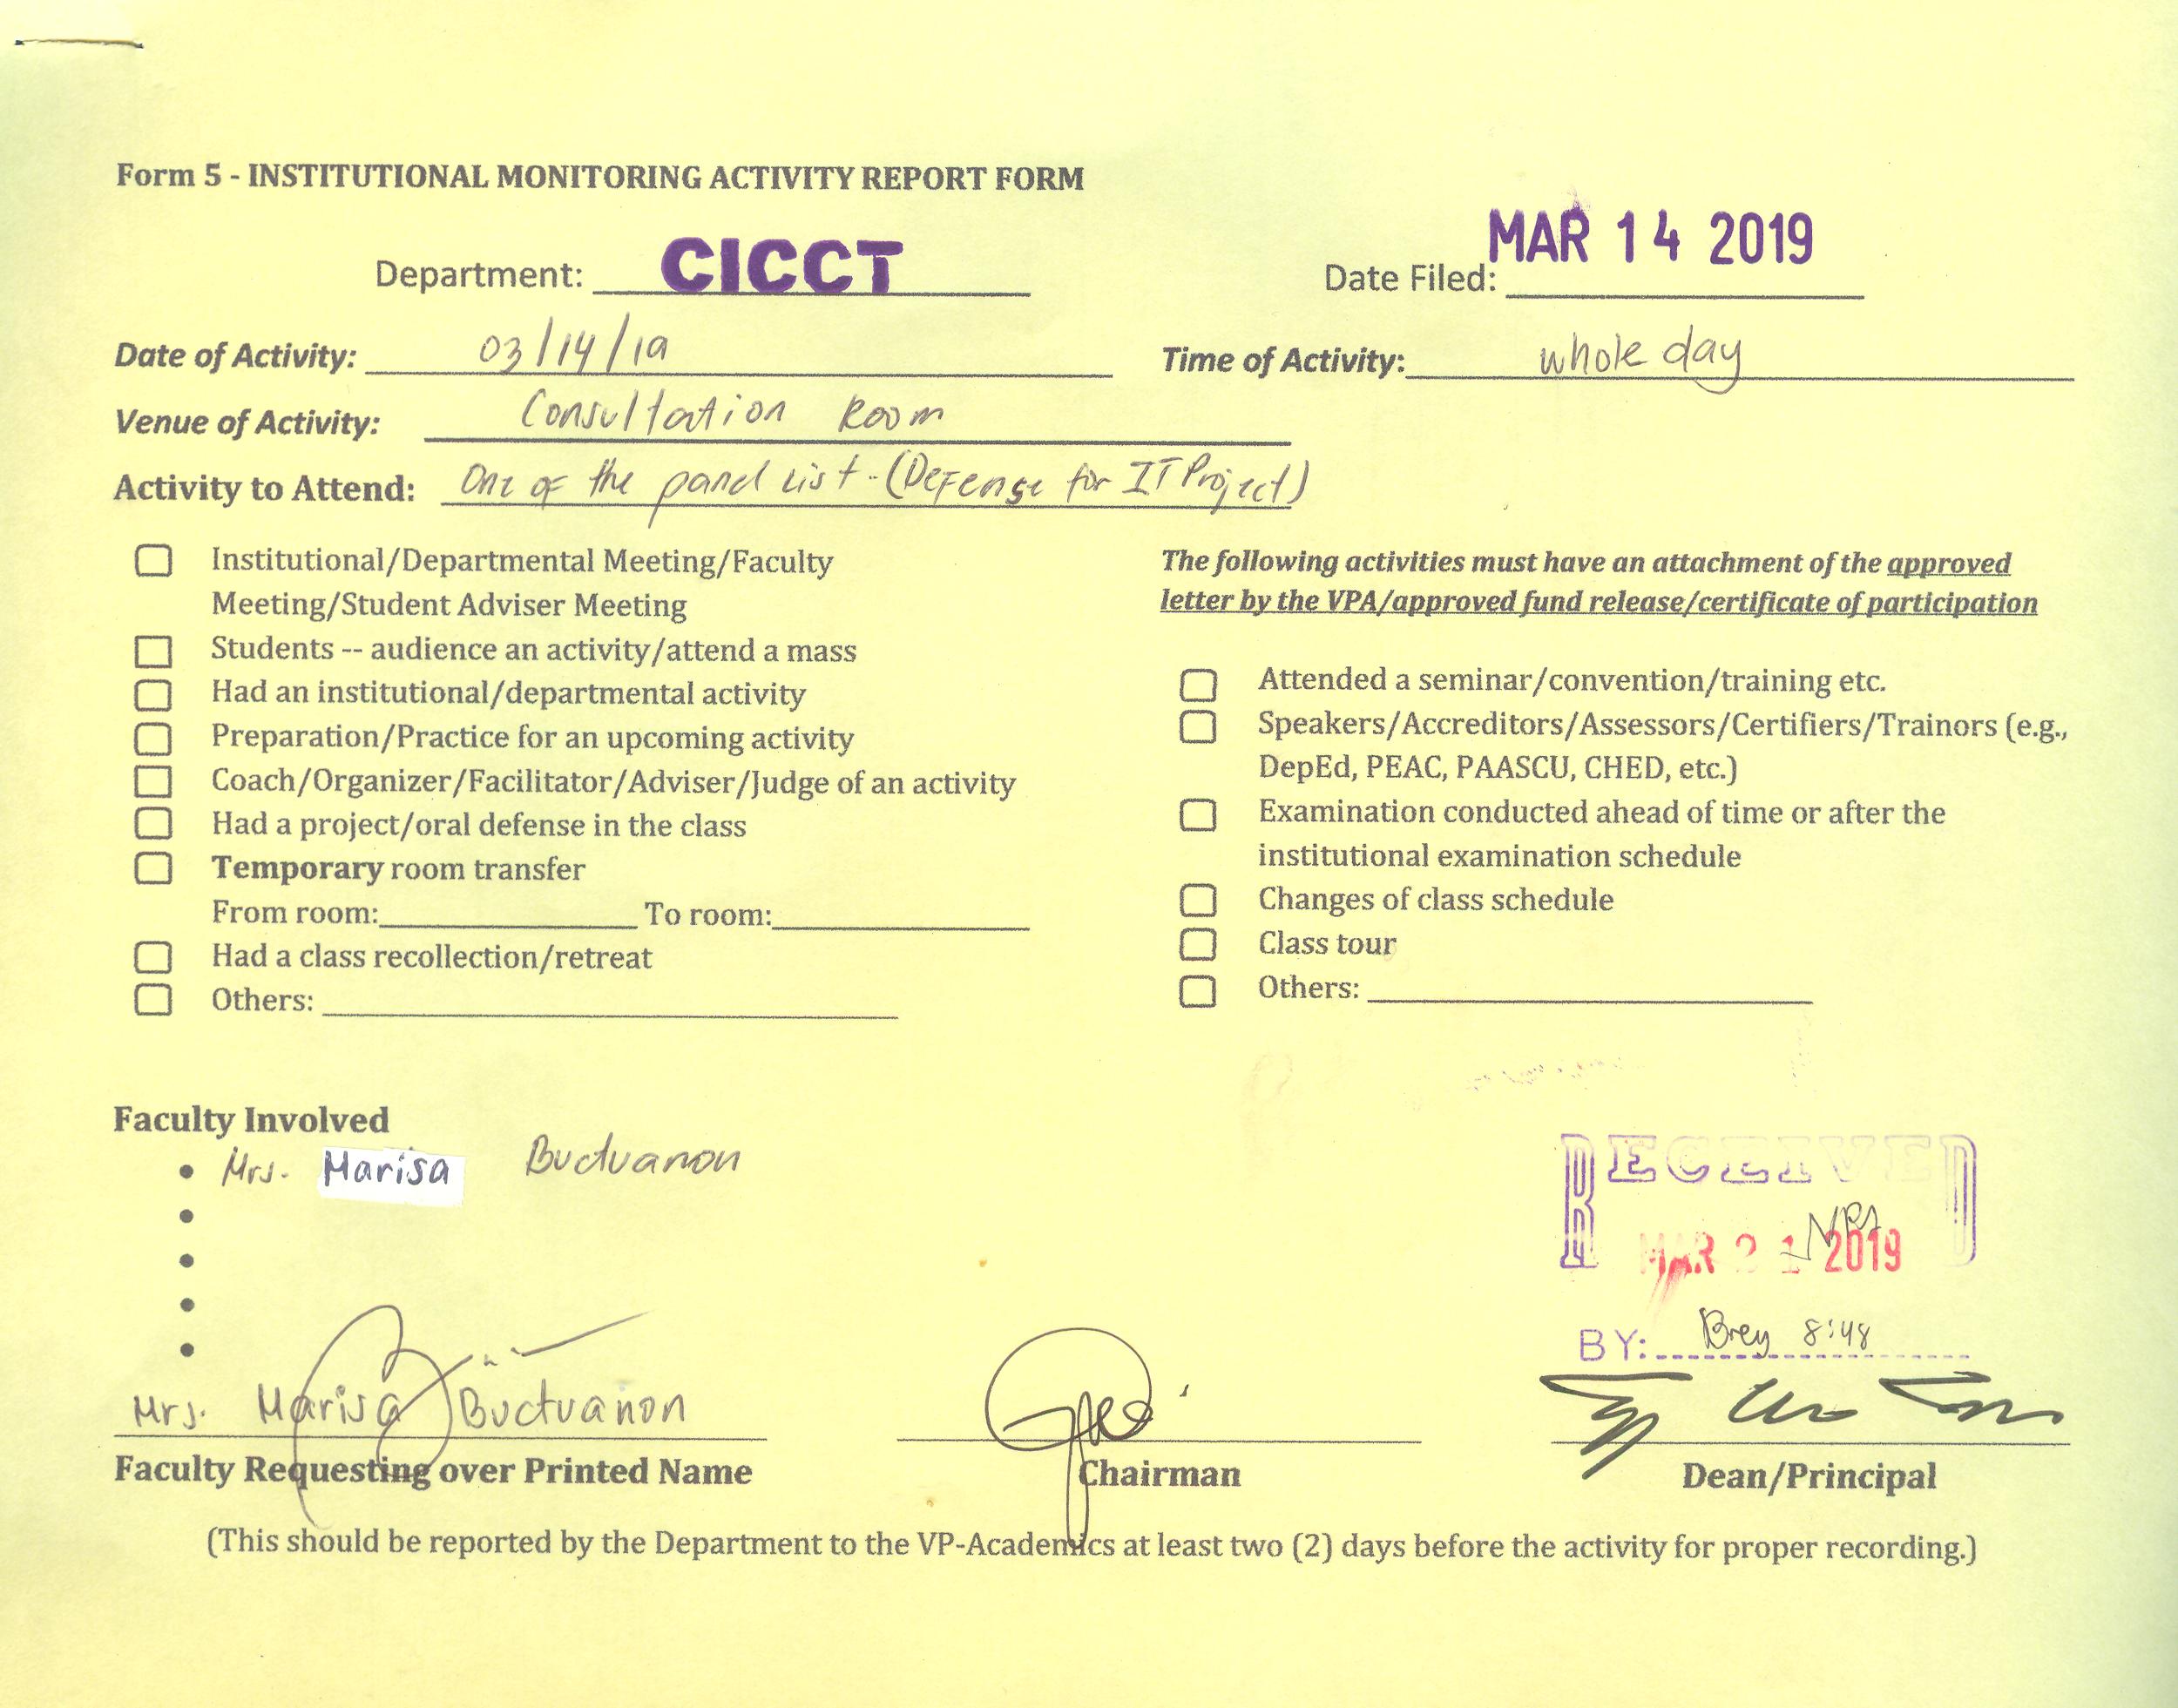 Form 5 - INSTITUTIONAL MONITORING ACTIVITY REPORT FORM
Department: CICCT Date Filed: MAR 14 2019
Date of Activity: 03/14/19 Time of Activity: whole day
Venue of Activity: Consultation Room
Activity to Attend: One of the panel list. (Defense for IT Project)
Institutional/Departmental Meeting/Faculty
Meeting/Student Adviser Meeting
Students -- audience an activity/attend a mass
Had an institutional/departmental activity
Preparation/Practice for an upcoming activity
Coach/Organizer/Facilitator/Adviser/Judge of an activity
Had a project/oral defense in the class
Temporary room transfer
From room: To room:
Had a class recollection/retreat
Others:
The following activities must have an attachment of the approved
letter by the VPA/approved fund release/certificate of participation
Attended a seminar/convention/training etc.
Speakers/Accreditors/Assessors/Certifiers/Trainors (e.g.,
DepEd, PEAC, PAASCU, CHED, etc.)
Examination conducted ahead of time or after the
institutional examination schedule
Changes of class schedule
Class tour
Others:
Faculty Involved
• Mrs. Marisa Buctuanon
•
•
•
•
RECEIVED
MAR 21 2019
BY: Brey 8:48
Mrs. Marisa Buctuanon
Faculty Requesting over Printed Name
Chairman
Dean/Principal
(This should be reported by the Department to the VP-Academics at least two (2) days before the activity for proper recording.)